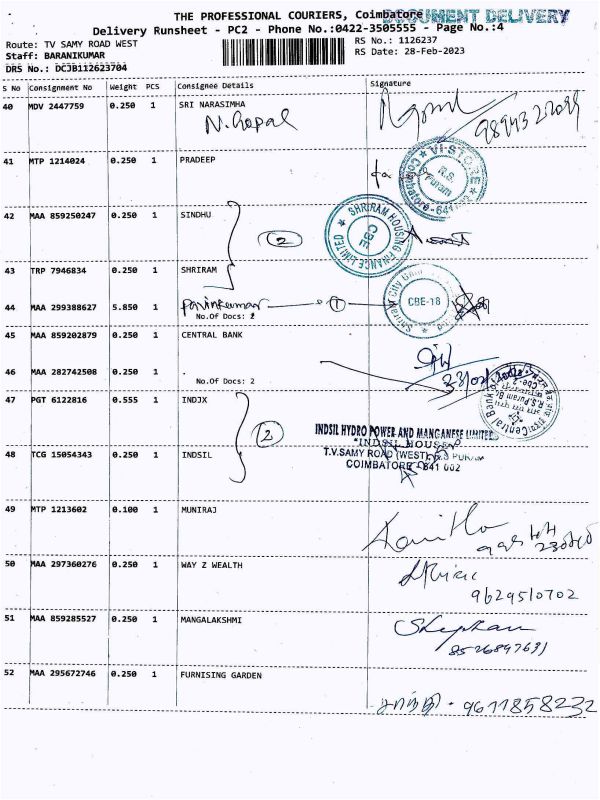 THE PROFESSIONAL COURIERS, Coimbatore DOCUMENT DELIVERY
Delivery Runsheet - PC2 - Phone No.:0422-3505555 - Page No.:4
Route: TV SAMY ROAD WEST RS No.: 1126237
Staff: BARANIKUMAR RS Date: 28-Feb-2023
DRS No.: DCJB112623704
S No Consignment No Weight PCS Consignee Details Signature
40 MDV 2447759 0.250 1 SRI NARASIMHA
N. Gopal
41 MTP 1214024 0.250 1 PRADEEP
for
VI-STORE
R.S. Puram
Coimbatore-641
42 MAA 859250247 0.250 1 SINDHU
2
SHRIRAM HOUSING FINANCE LIMITED
CBE
43 TRP 7946834 0.250 1 SHRIRAM
44 MAA 299388627 5.850 1 Pavinkumar 1
No.Of Docs: 2
Shriram City
CBE-18
45 MAA 859202879 0.250 1 CENTRAL BANK
46 MAA 282742508 0.250 1 .
No.Of Docs: 2
Central Bank
R.S.Puram
Cbe-2
47 PGT 6122816 0.555 1 INDJX
2
INDSIL HYDRO POWER AND MANGANESE LIMITED
"INDSIL HOUSE"
T.V.SAMY ROAD (WEST), R.S PURAM
COIMBATORE - 641 002
48 TCG 15054343 0.250 1 INDSIL
49 MTP 1213602 0.100 1 MUNIRAJ
50 MAA 297360276 0.250 1 WAY Z WEALTH
9629510702
51 MAA 859285527 0.250 1 MANGALAKSHMI
Stephan
8526897631
52 MAA 295672746 0.250 1 FURNISING GARDEN
சாந்தி - 9611858232